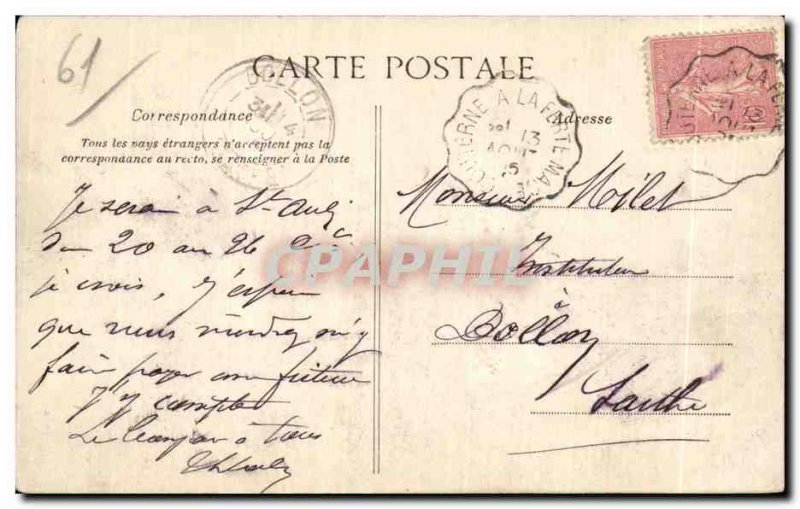 61
CARTE POSTALE
Correspondance
Adresse
Tous les pays étrangers n'acceptent pas la
correspondance au recto, se renseigner à la Poste
BOLLON
COUTERNE A LA FERTE MACÉ
13
AOUT
05
A LA FERTE
10
Je serai à St
du 20 au 26
je crois, J'espère
que vous viendrez m'y
faire payer une friture
J'y compte
Le bonjour à tous
Monsieur Milet
Instituteur
à
Bollon
Sarthe
CPAPHIL